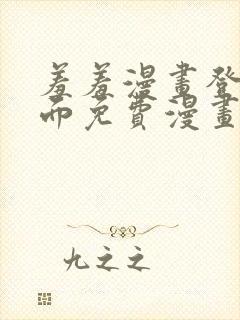 羞羞漫畫登
而免費漫畫
九之之